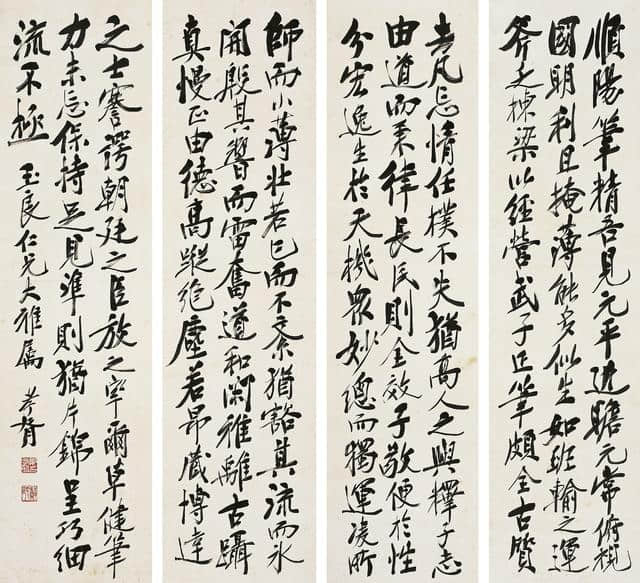 順陽筆精吾見元平迹瞻元常俯視
國明利且掩薄能老似生如班輸之運
斧乏棟梁以經營武子正筆頗全古質
去凡忘情任樸不失猶高人之與釋子志
由道而秉律長民則全效子敬便於性
分宏逸生於天機眾妙總而獨運凌所
師而小薄壯若已而不紊猶豁其流而冰
開殷其響而雷奮道和閑雅離古躡
真慢正由德高蹤絕塵若昂藏博達
之士謇諤朝廷之臣放之率爾草健筆
力未忘保持足見準則猶片錦呈巧細
流不極 玉良仁兄大雅屬 孝胥